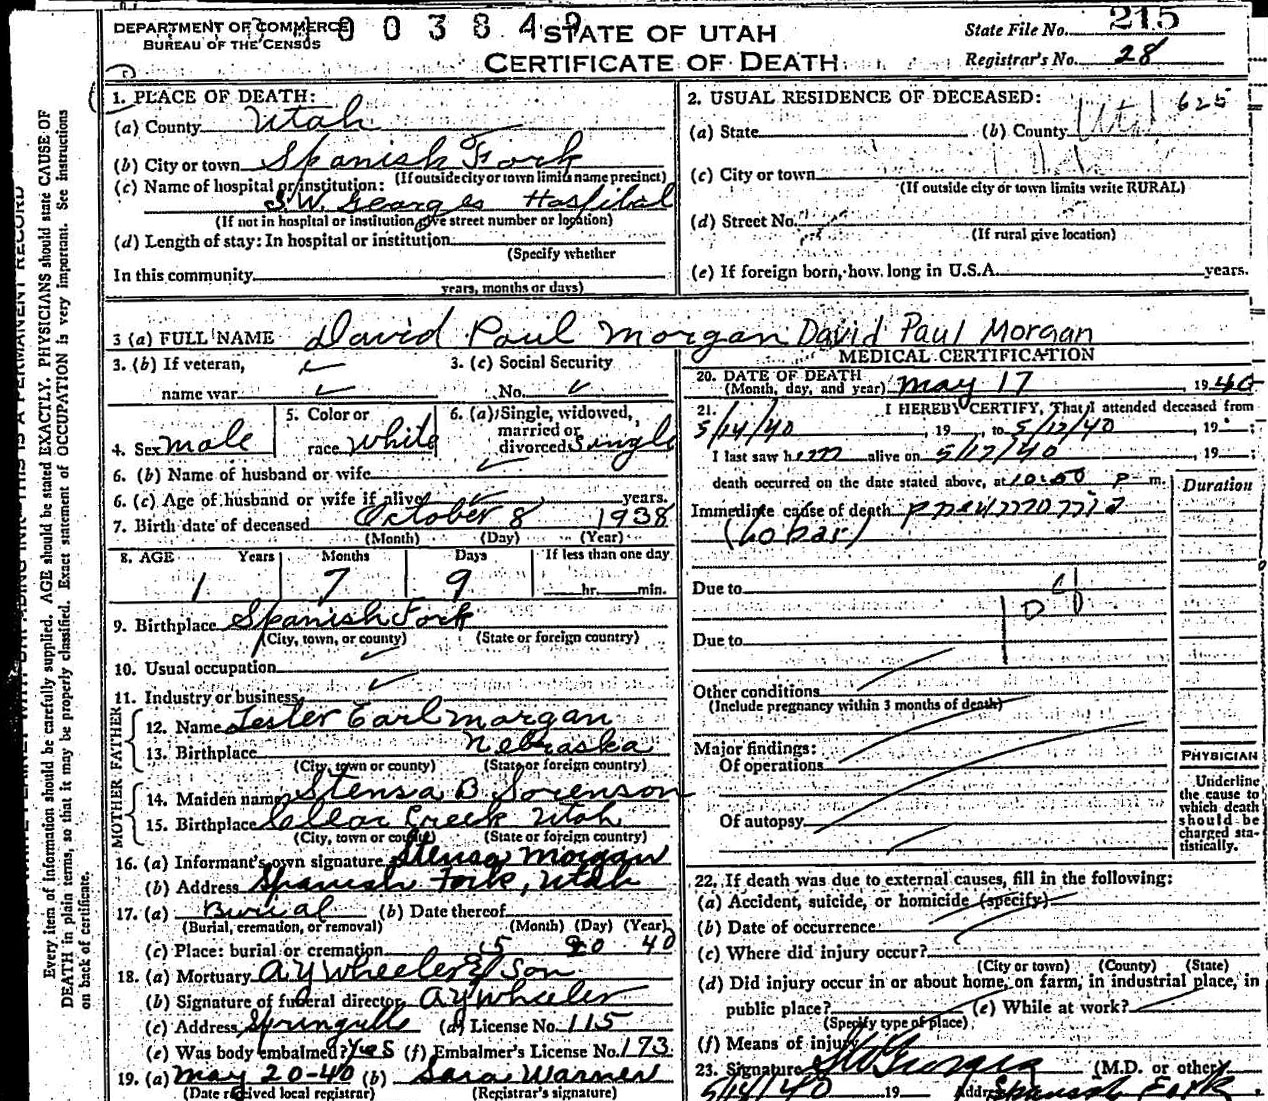 DEPARTMENT OF COMMERCE
BUREAU OF THE CENSUS
003849
STATE OF UTAH
CERTIFICATE OF DEATH
State File No. 215
Registrar's No. 28
1. PLACE OF DEATH:
(a) County Utah
(b) City or town Spanish Fork
(If outside city or town limits name precinct)
(c) Name of hospital or institution:
Hospital
(If not in hospital or institution give street number or location)
(d) Length of stay: In hospital or institution
(Specify whether
In this community
years, months or days)
2. USUAL RESIDENCE OF DECEASED: 625
(a) State (b) County Utah
(c) City or town
(If outside city or town limits write RURAL)
(d) Street No.
(If rural give location)
(e) If foreign born, how long in U.S.A. years.
3 (a) FULL NAME David Paul Morgan David Paul Morgan
3. (b) If veteran,
name war
3. (c) Social Security
No.
4. Sex male
5. Color or
race white
6. (a) Single, widowed,
married or
divorced Single
6. (b) Name of husband or wife
6. (c) Age of husband or wife if alive years.
7. Birth date of deceased October 8 1938
(Month) (Day) (Year)
8. AGE Years Months Days If less than one day
1 7 9 hr. min.
9. Birthplace Spanish Fork
(City, town, or county) (State or foreign country)
10. Usual occupation
11. Industry or business
FATHER
12. Name Lester Earl Morgan
13. Birthplace Nebraska
(City, town or county) (State or foreign country)
MOTHER
14. Maiden name Stensa B Sorenson
15. Birthplace Clear Creek Utah
(City, town or county) (State or foreign country)
16. (a) Informant's own signature Stensa Morgan
(b) Address Spanish Fork, Utah
17. (a) Burial (b) Date thereof
(Burial, cremation, or removal) (Month) (Day) (Year)
(c) Place: burial or cremation 5 20 40
18. (a) Mortuary A Y Wheeler & Son
(b) Signature of funeral director A Y Wheeler
(c) Address Springville (d) License No. 115
(e) Was body embalmed? Yes (f) Embalmer's License No. 173
19. (a) May 20-40 (b) Sara Warner
(Date received local registrar) (Registrar's signature)
MEDICAL CERTIFICATION
20. DATE OF DEATH
(Month, day, and year) May 17, 1940
21. I HEREBY CERTIFY, That I attended deceased from
5/14/40, 19 , to 5/17/40, 19 ;
I last saw him alive on 5/17/40, 19 ;
death occurred on the date stated above, at 10:00 P m.
Duration
Immediate cause of death pneumonia
(Lobar)
Due to
Due to
Other conditions
(Include pregnancy within 3 months of death)
Major findings:
Of operations
Of autopsy
PHYSICIAN
Underline
the cause to
which death
should be
charged sta-
tistically.
22. If death was due to external causes, fill in the following:
(a) Accident, suicide, or homicide (specify)
(b) Date of occurrence
(c) Where did injury occur?
(City or town) (County) (State)
(d) Did injury occur in or about home, on farm, in industrial place, in
public place? (e) While at work?
(Specify type of place)
(f) Means of injury
23. Signature (M.D. or other)
5/18/40 19 Address Spanish Fork
Every item of Information should be carefully supplied. AGE should be stated EXACTLY. PHYSICIANS should state CAUSE OF
DEATH in plain terms, so that it may be properly classified. Exact statement of OCCUPATION is very important. See instructions
on back of certificate.
THIS IS A PERMANENT RECORD